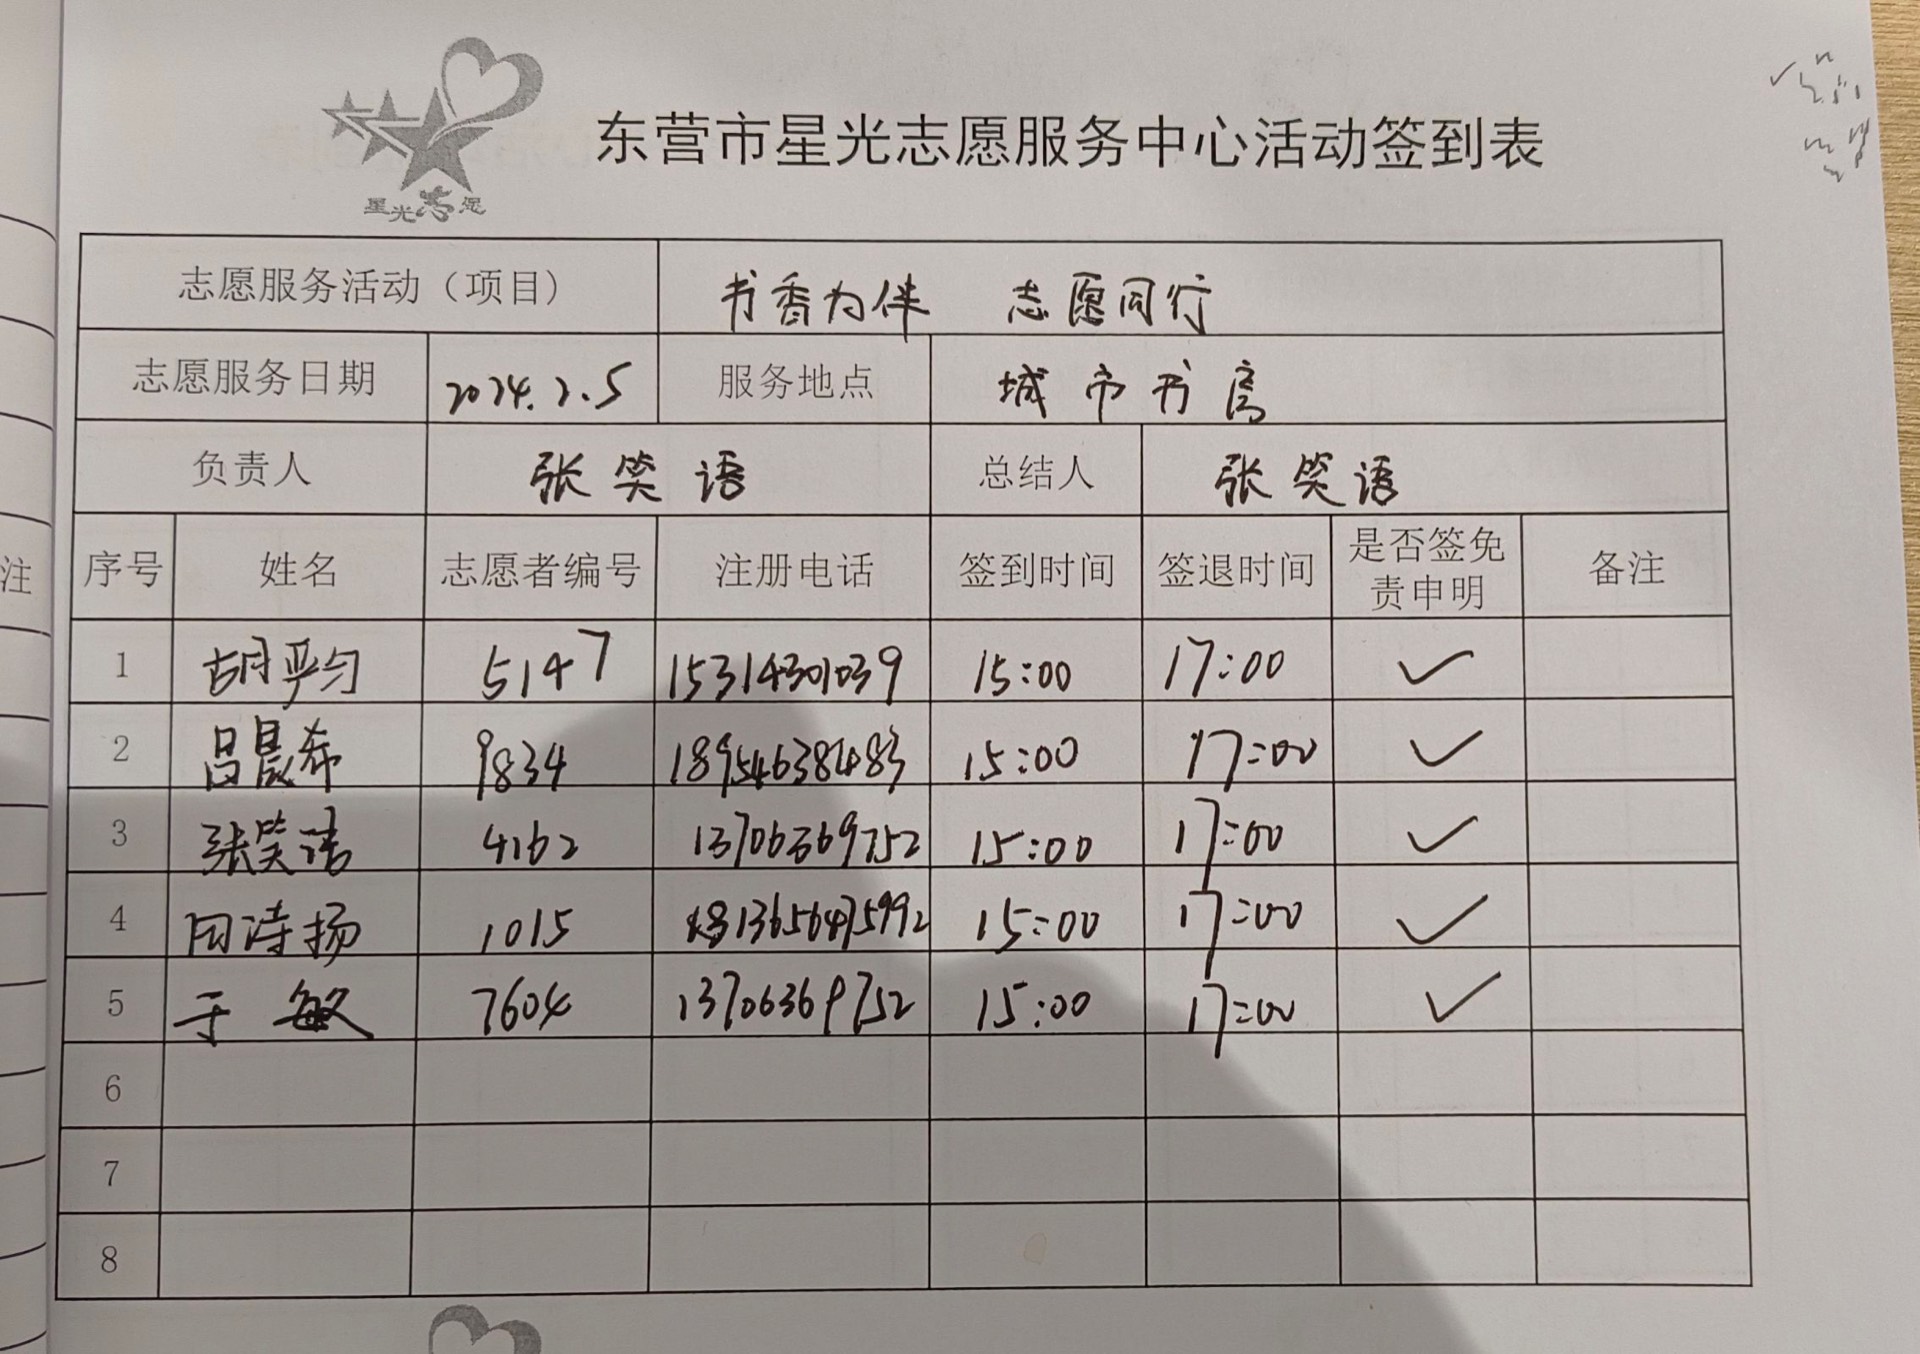 星光志愿
东营市星光志愿服务中心活动签到表
志愿服务活动（项目） 书香为伴 志愿同行
志愿服务日期 2024.2.5 服务地点 城市书房
负责人 张笑语 总结人 张笑语
序号 姓名 志愿者编号 注册电话 签到时间 签退时间 是否签免责申明 备注
1 胡平匀 5147 15314301039 15:00 17:00 ✓
2 吕晨希 9834 18954638483 15:00 17:00 ✓
3 张笑语 4162 13706369752 15:00 17:00 ✓
4 周诗扬 1015 13656475992 15:00 17:00 ✓
5 于敏 7604 13706369752 15:00 17:00 ✓
6
7
8
注